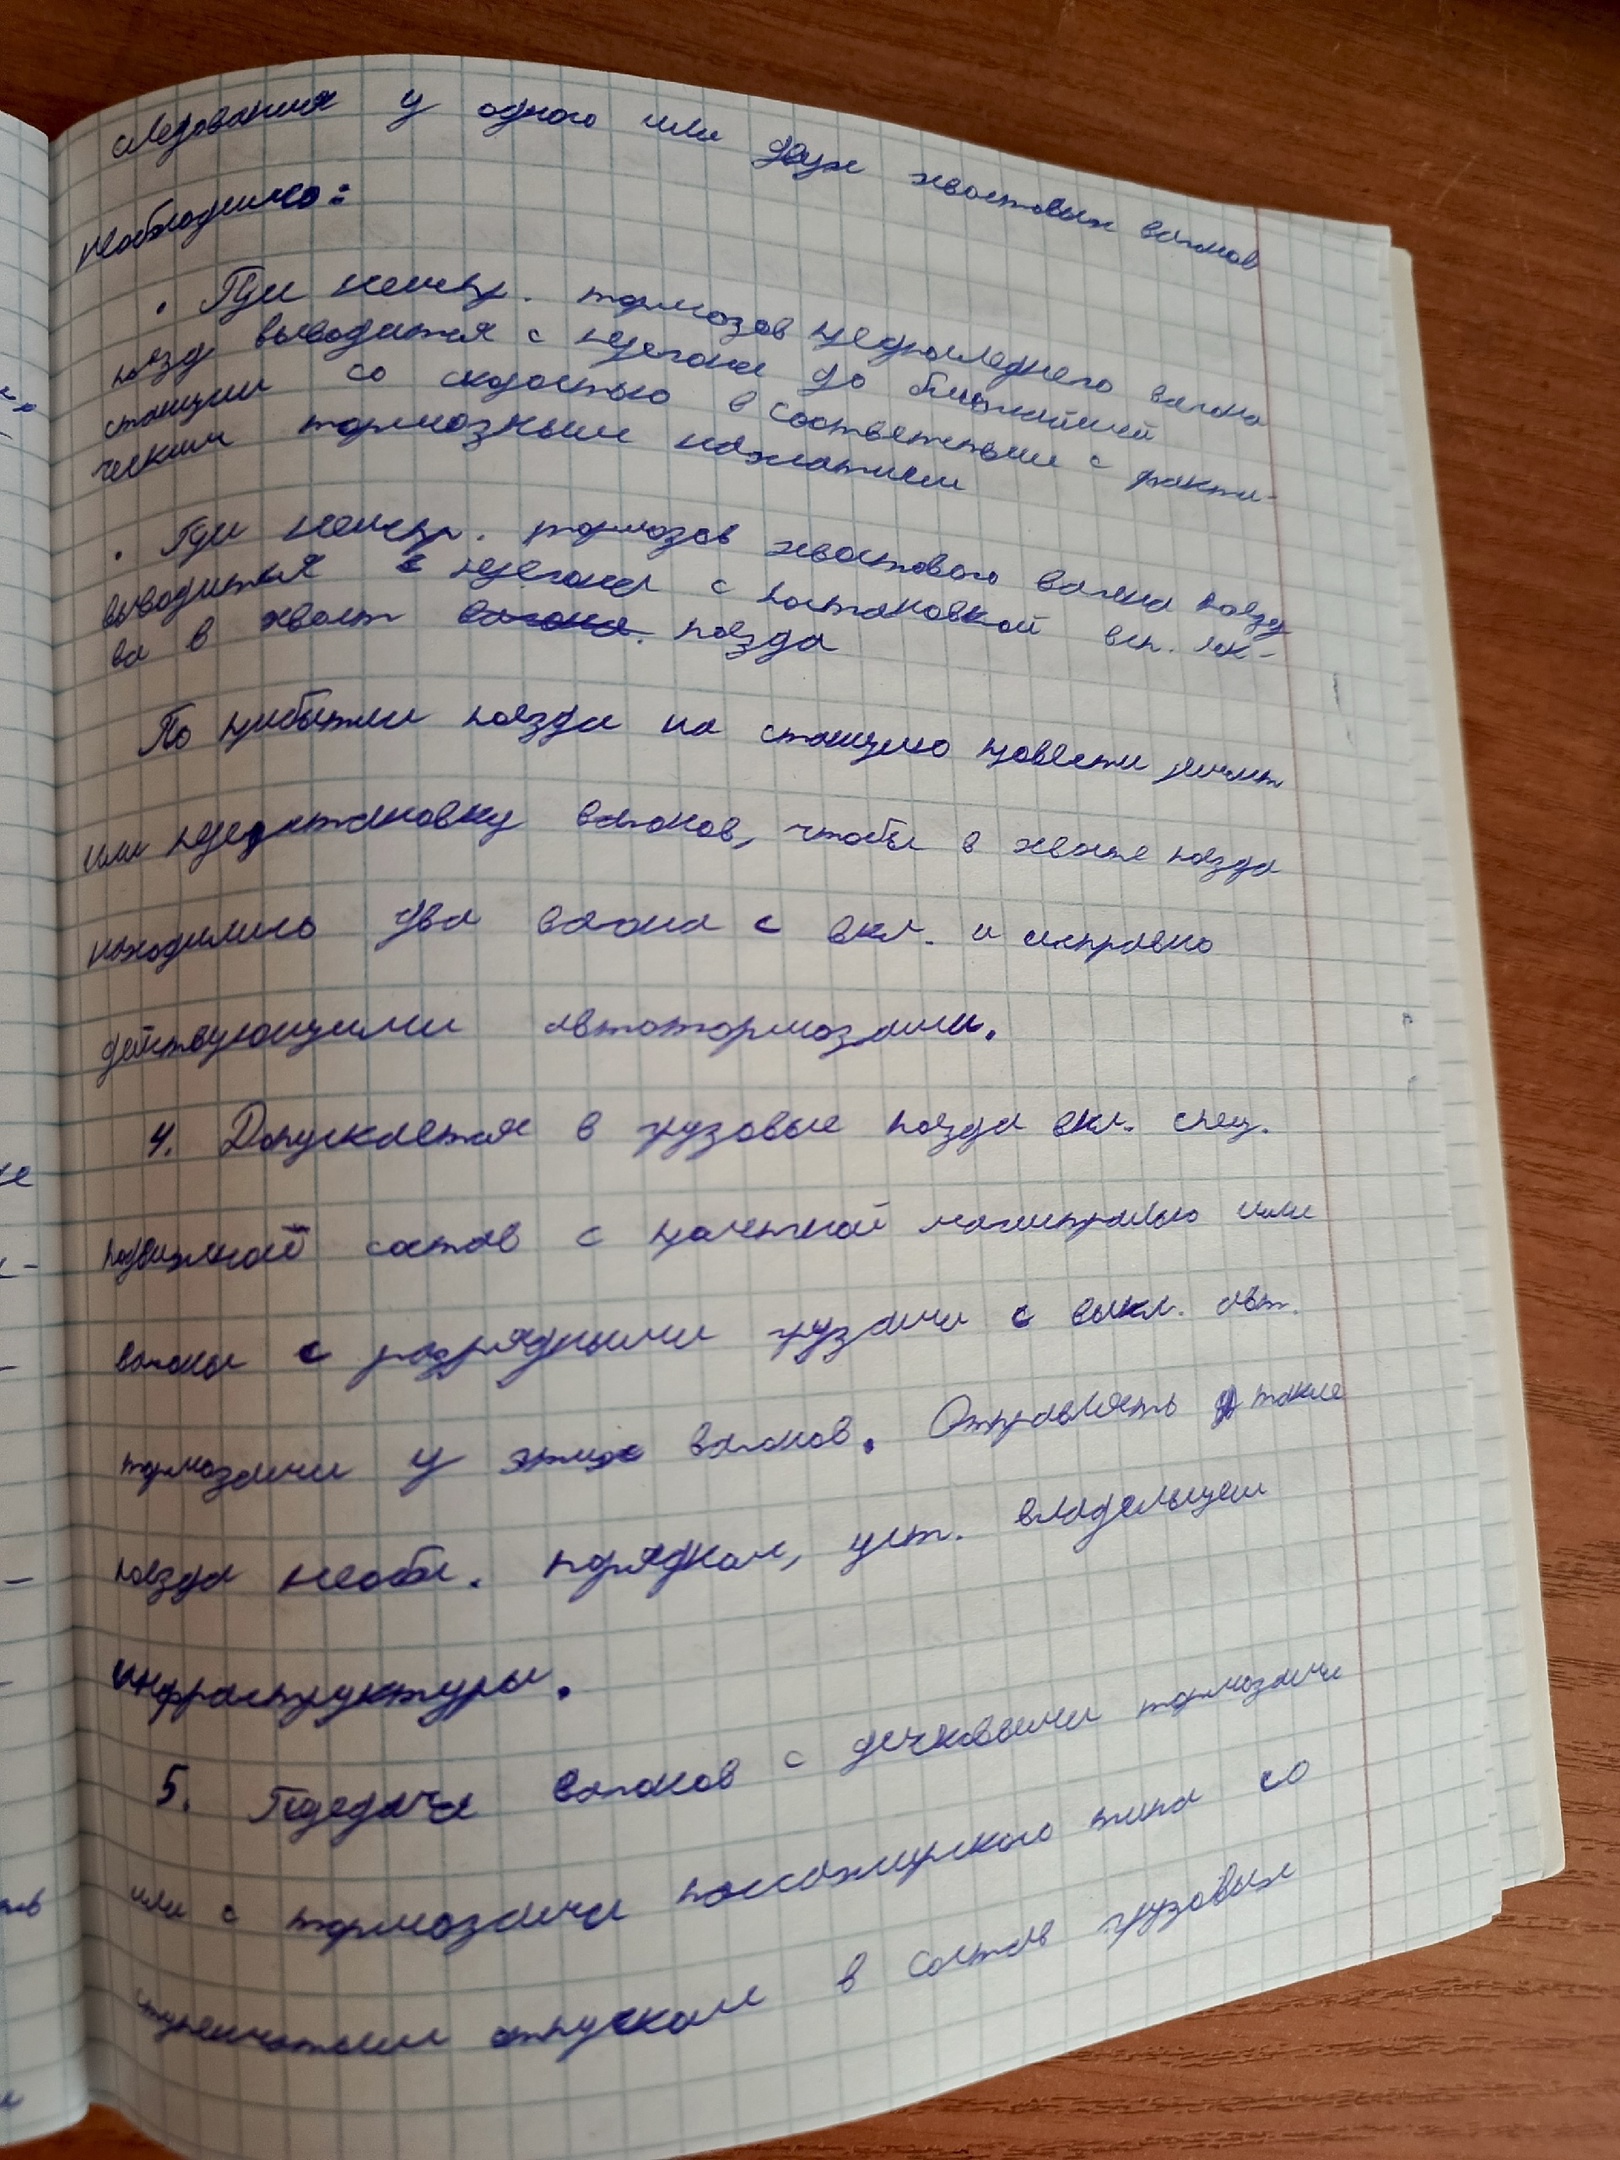 следования у одного или двух хвостовых вагонов
необходимо:
· При неиспр. тормозов предпоследнего вагона
поезд выводится с перегона до ближайшей
станции со скоростью в соответствии с факти-
ческим тормозным нажатием
· При неиспр. тормозов хвостового вагона поезд
выводится с перегона с постановкой всп. лок-
ва в хвост вагона. поезда
По прибытии поезда на станцию провести ремонт
или перестановку вагонов, чтобы в хвосте поезда
находились два вагона с вкл. и исправно
действующими автотормозами.
4. Допускается в грузовые поезда вкл. спец.
подвижной состав с пролетной магистралью или
вагоны с разрядными грузами с выкл. авт.
тормозами у этих вагонов. Отправлять такие
поезда необх. порядком, уст. владельцем
инфраструктуры.
5. Передача вагонов с дисковыми тормозами
или с тормозами пассажирского типа со
ступенчатым отпуском в состав грузовых